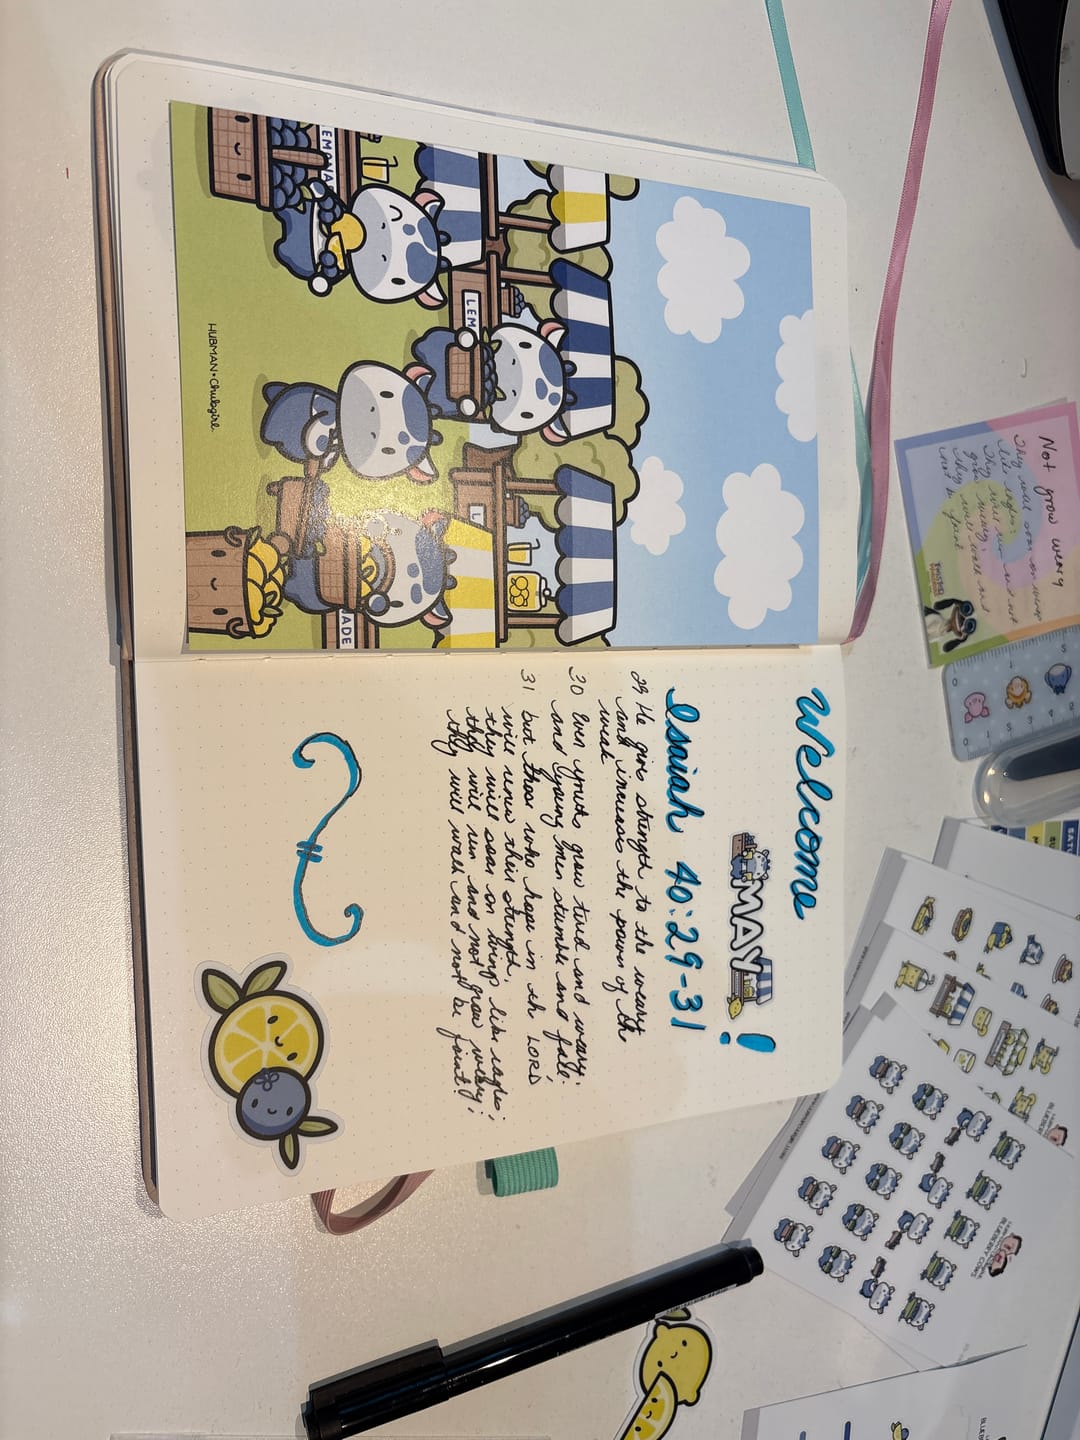 LEMONA
LEM
L
ADE
HUBMAN • Chubgirl
Welcome
MAY!
Isaiah 40:29-31
29 He gives strength to the weary
and increases the power of th
weak
30 Even youths grow tired and weary,
and young men stumble and fall;
31 but those who hope in th LORD
will renew their strength.
they will soar on wings like eagles;
they will run and not grow weary;
they will walk and not be faint!
Not grow weary
They will soar on wings
like eagles;
They will run and not
grow weary,
they will walk and
not be faint
BLUEBERRY COWS